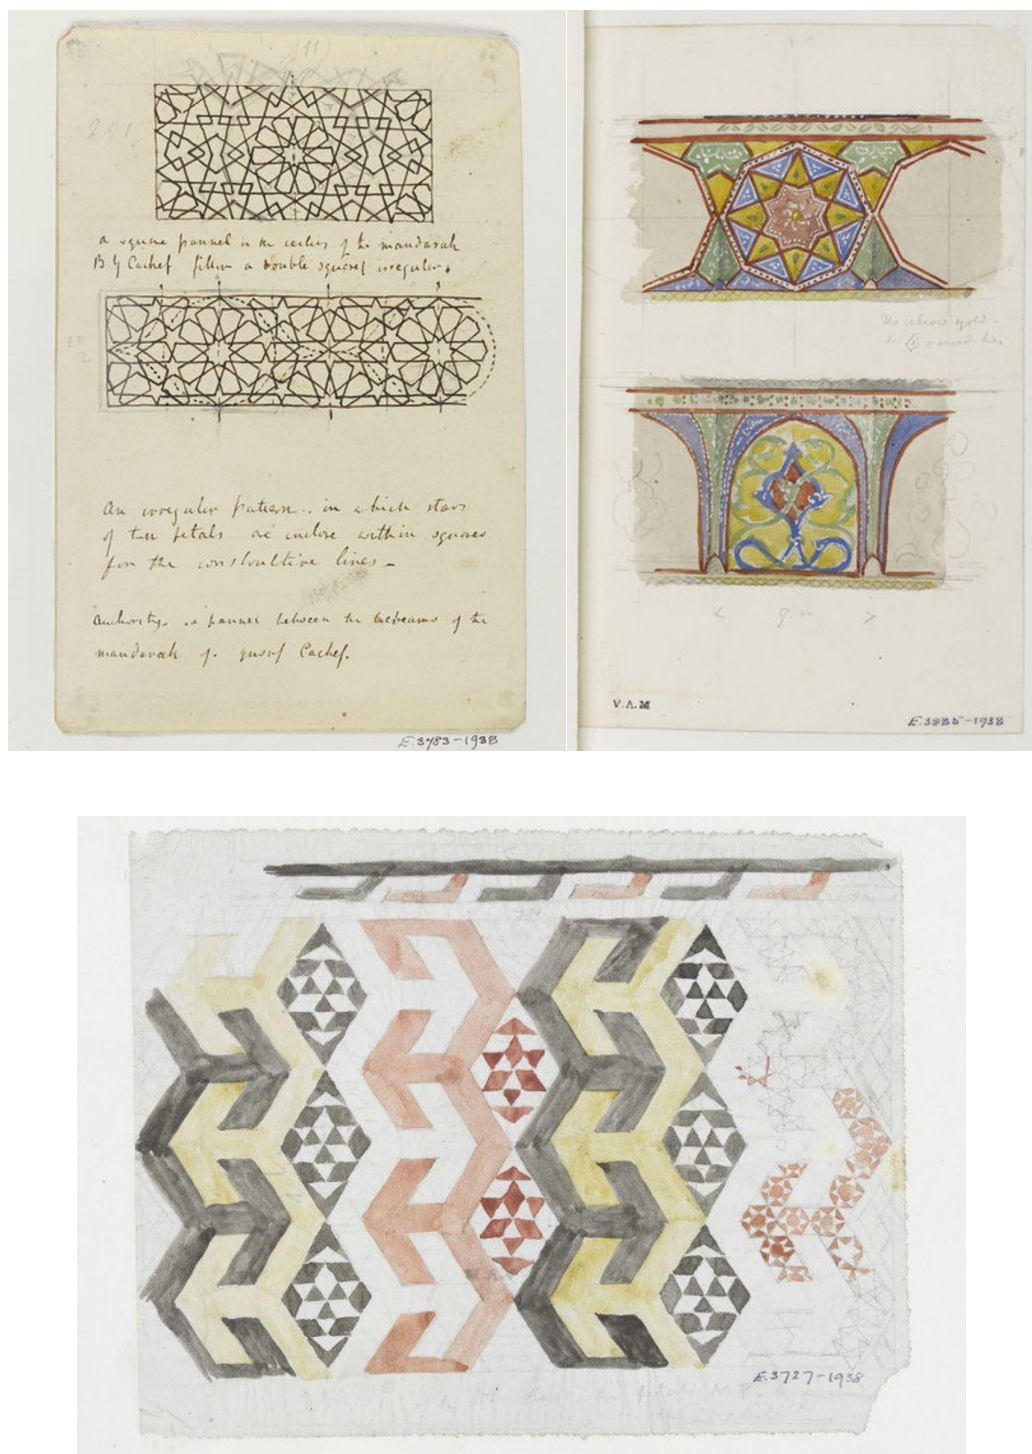 (11)
a square pannel in the ceilies of the mandarah
B y Cachef a double squares irregular
An irregular pattern .. in which stars
of ten petals are inclose within squares
for the constructive lines _
Authority. a pannel between the of the
mandarah of. yusuf Cachef.
E.3783-1938
The above gold
round her
9. in
V.A.M
E.3885-1938
E.3727-1938